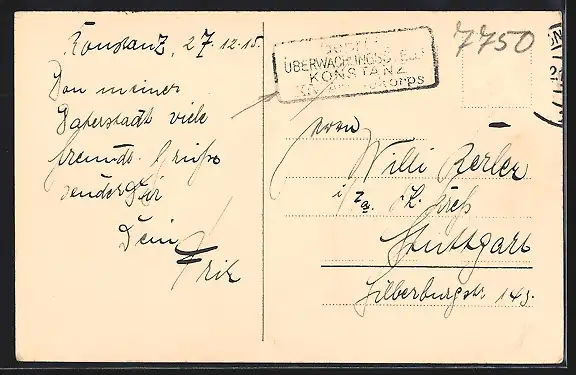 Konstanz, 27.12.15.
Von meiner
Vaterstadt viele
freundl. Grüße
sendet Dir
Dein
Fritz
ÜBERWACHUNGSSTELLE
KONSTANZ
Korps
7750
Herrn
Willi
i/
Stuttgart
Silberburgstr 145.